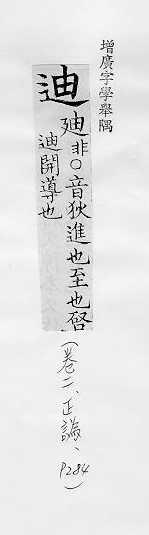 增廣字學舉隅
迪
廸非○音狄進也至也啓
迪開導也
(卷二、正譌、P284)